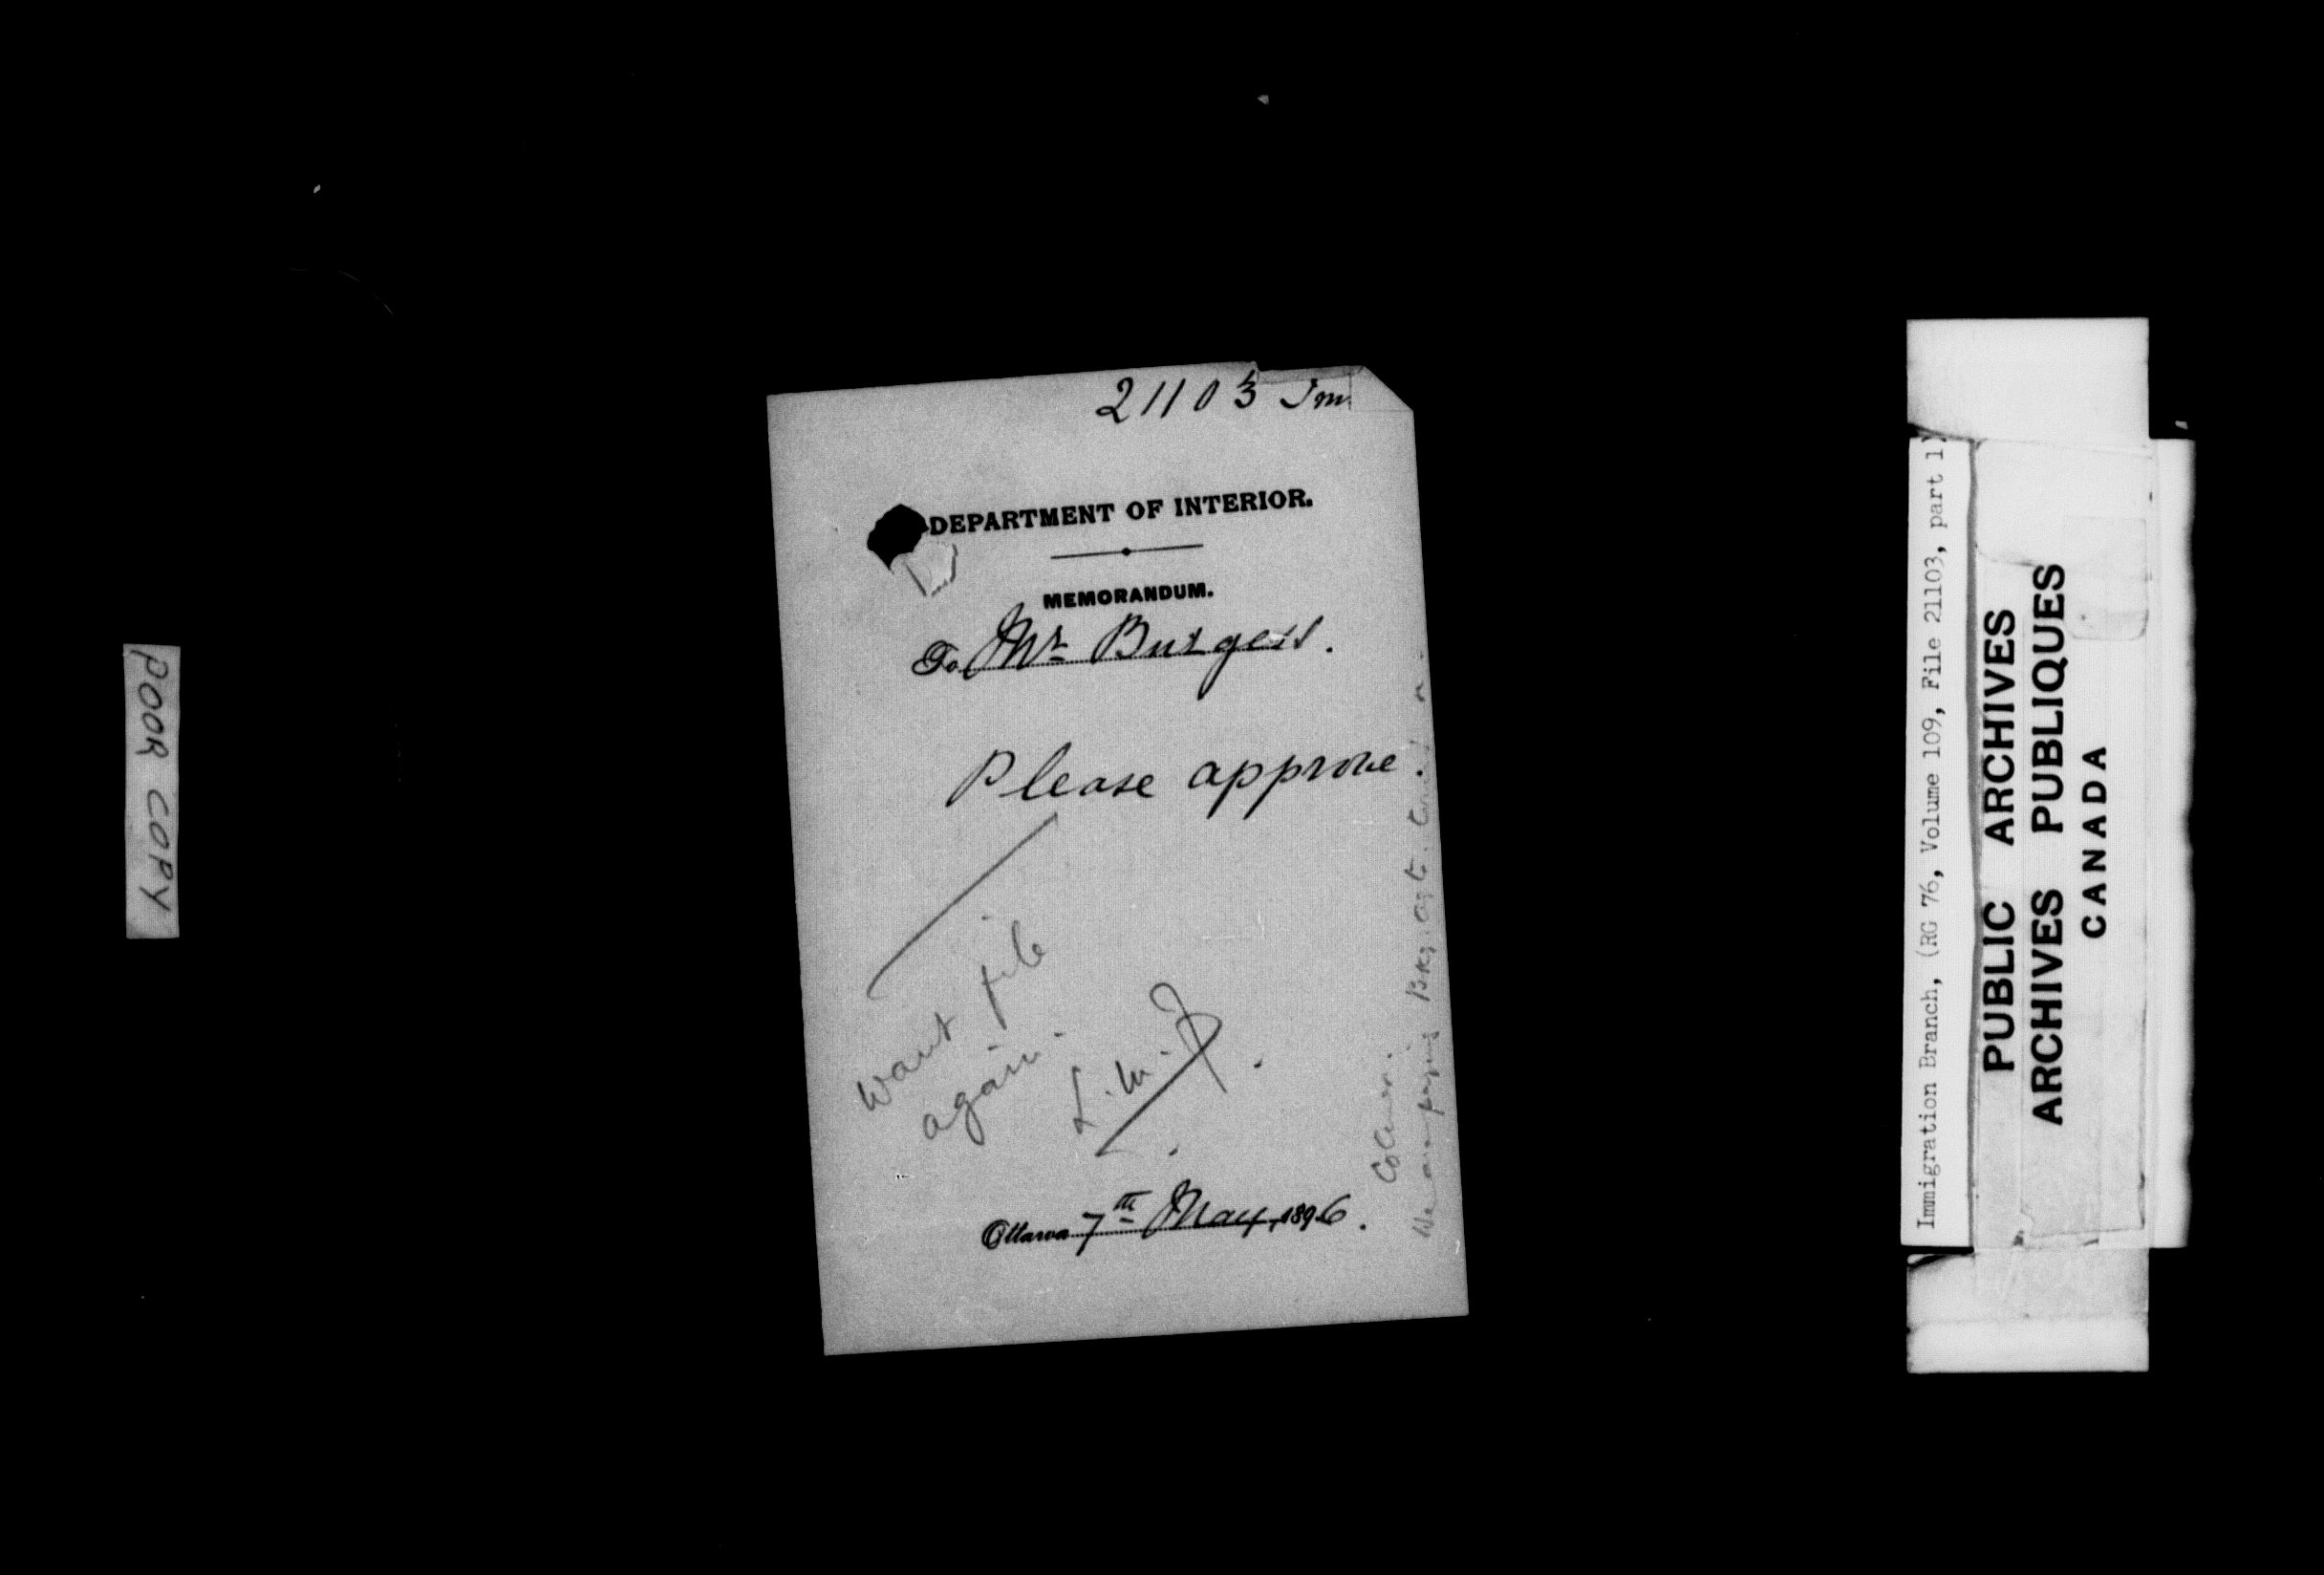 POOR COPY
21103 Im
DEPARTMENT OF INTERIOR.
MEMORANDUM.
To Mr Burgess.
Please approve.
Want file
again.
L.M.F.
Ottawa 7th May, 1896.
Immigration Branch, (RG 76, Volume 109, File 21103, part 1)
PUBLIC ARCHIVES
ARCHIVES PUBLIQUES
CANADA